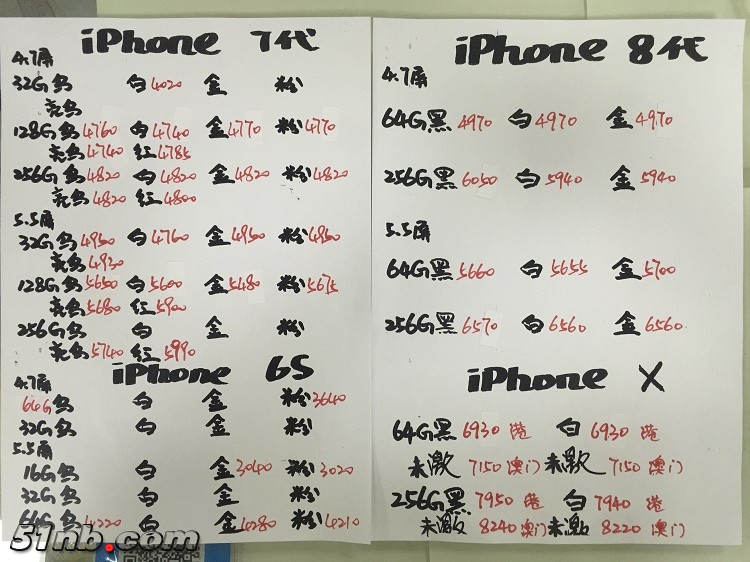 iPhone 7代
4.7屏
32G鸟 白4020 金 粉
亮鸟
128G鸟4760 白4740 金4770 粉4770
亮鸟4740 红4785
256G鸟4820 白4820 金4820 粉4820
亮鸟4820 红4800
5.5屏
32G鸟4950 白4760 金4950 粉4950
亮鸟4930
128G鸟5650 白5600 金5480 粉5675
亮鸟5680 红5900
256G鸟 白 金 粉
亮鸟5740 红5990
iPhone 6S
4.7屏
64G鸟 白 金 粉3640
32G鸟 白 金 粉
5.5屏
16G鸟 白 金3040 粉3020
32G鸟 白 金 粉
64G鸟4220 白 金4280 粉4210
iPhone 8代
4.7屏
64G黑4970 白4970 金4970
256G黑6050 白5940 金5940
5.5屏
64G黑5660 白5655 金5700
256G黑6570 白6560 金6560
iPhone X
64G黑6930港 白6930港
未激7150澳门 未激7150澳门
256G黑7950港 白7940港
未激8240澳门 未激8220澳门
51nb.com